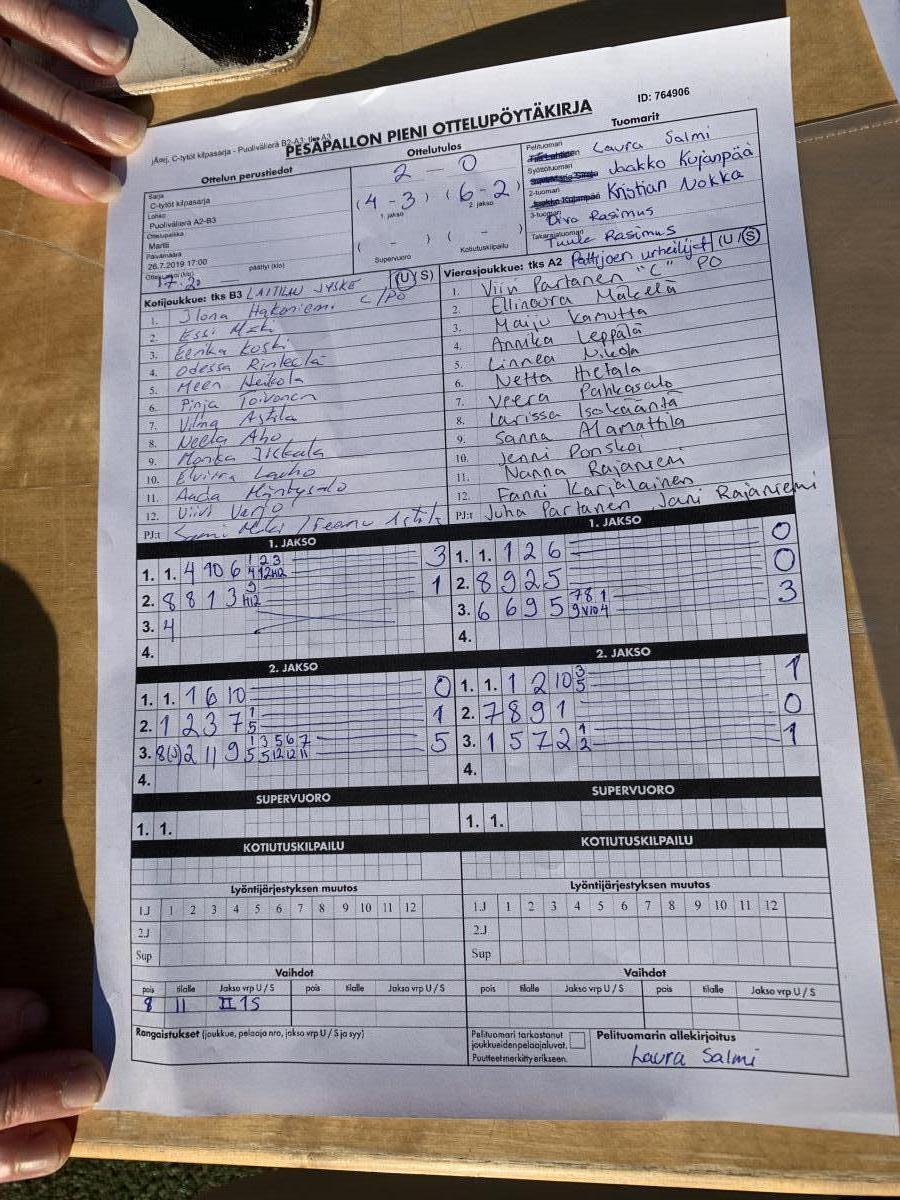 ID: 764906
jÄsej, C-tytöt kilpasarja - Puolivälierä B2-A3:
PESÄPALLON PIENI OTTELUPÖYTÄKIRJA
Ottelun perustiedot
Sarja
C-tytöt kilpasarja
Lohko
Puolivälierä A2-B3
Ottelupaikka
Martti
Päivämäärä
26.7.2019 17:00
päättyi (klo)
Ottelutulos
2 - 0
(4 - 3) (6 - 2)
1. jakso 2. jakso
( - ) ( - )
Supervuoro Kotiutuskilpailu
Tuomarit
Pelituomari
Laura Salmi
Syöttötuomari
Jaakko Kujanpää
2-tuomari
Kristian Nokka
3-tuomari
Oiva Rasimus
Takarajatuomari
Tuula Rasimus
Kotijoukkue: tks B3 LAITILAN JYSKE (U/S)
1. Ilona Hakoniemi C/PO
2. Essi Mäki
3. Eerika Koski
4. Odessa Rintelä
5. Meeri Heikola
6. Pinja Toivonen
7. Vilma Astila
8. Neela Aho
9. Monika Jickala
10. Elviira Lauho
11. Aada Mäntysalo
12. Viivi Verjo
PJ:t
Vierasjoukkue: tks A2 Pattijoen urheilijat (U/S)
1. Viivi Partanen "C" PO
2. Ellinoora Mäkelä
3. Maiju Kamutta
4. Annika Leppälä
5. Linnea Nikola
6. Netta Hietala
7. Veera Pahkasalo
8. Larissa Isokääntä
9. Sanna Alamattila
10. Jenni Ponskoi
11. Nanna Rajaniemi
12. Fanni Karjalainen
PJ:t Juha Partanen, Jani Rajaniemi
1. JAKSO
1. 1. 4 10 6 1 2 3 4 12 H2 3
2. 8 8 1 3 9 H12 1
3. 4
4.
1. JAKSO
1. 1. 1 2 6 0
2. 8 9 2 5 0
3. 6 6 9 5 7 8 1 9 V10 4 3
4.
2. JAKSO
1. 1. 1 6 10 0
2. 1 2 3 7 1 5 1
3. 8(J) 2 11 9 1 3 5 6 7 5 5 12 12 11 5
4.
2. JAKSO
1. 1. 1 2 10 3 5 1
2. 7 8 9 1 0
3. 1 5 7 2 1 2 1
4.
SUPERVUORO
1. 1.
SUPERVUORO
1. 1.
KOTIUTUSKILPAILU
KOTIUTUSKILPAILU
Lyöntijärjestyksen muutos
1.J 1 2 3 4 5 6 7 8 9 10 11 12
2.J
Sup
Lyöntijärjestyksen muutos
1.J 1 2 3 4 5 6 7 8 9 10 11 12
2.J
Sup
Vaihdot
pois tilalle Jakso vrp U / S pois tilalle Jakso vrp U / S
8 11 II 1S
Vaihdot
pois tilalle Jakso vrp U / S pois tilalle Jakso vrp U / S
Rangaistukset (joukkue, pelaaja nro, jakso vrp U / S ja syy)
Pelituomari tarkastanut
joukkueidenpelaajaluvat.
Puutteetmerkitty erikseen.
Pelituomarin allekirjoitus
Laura Salmi